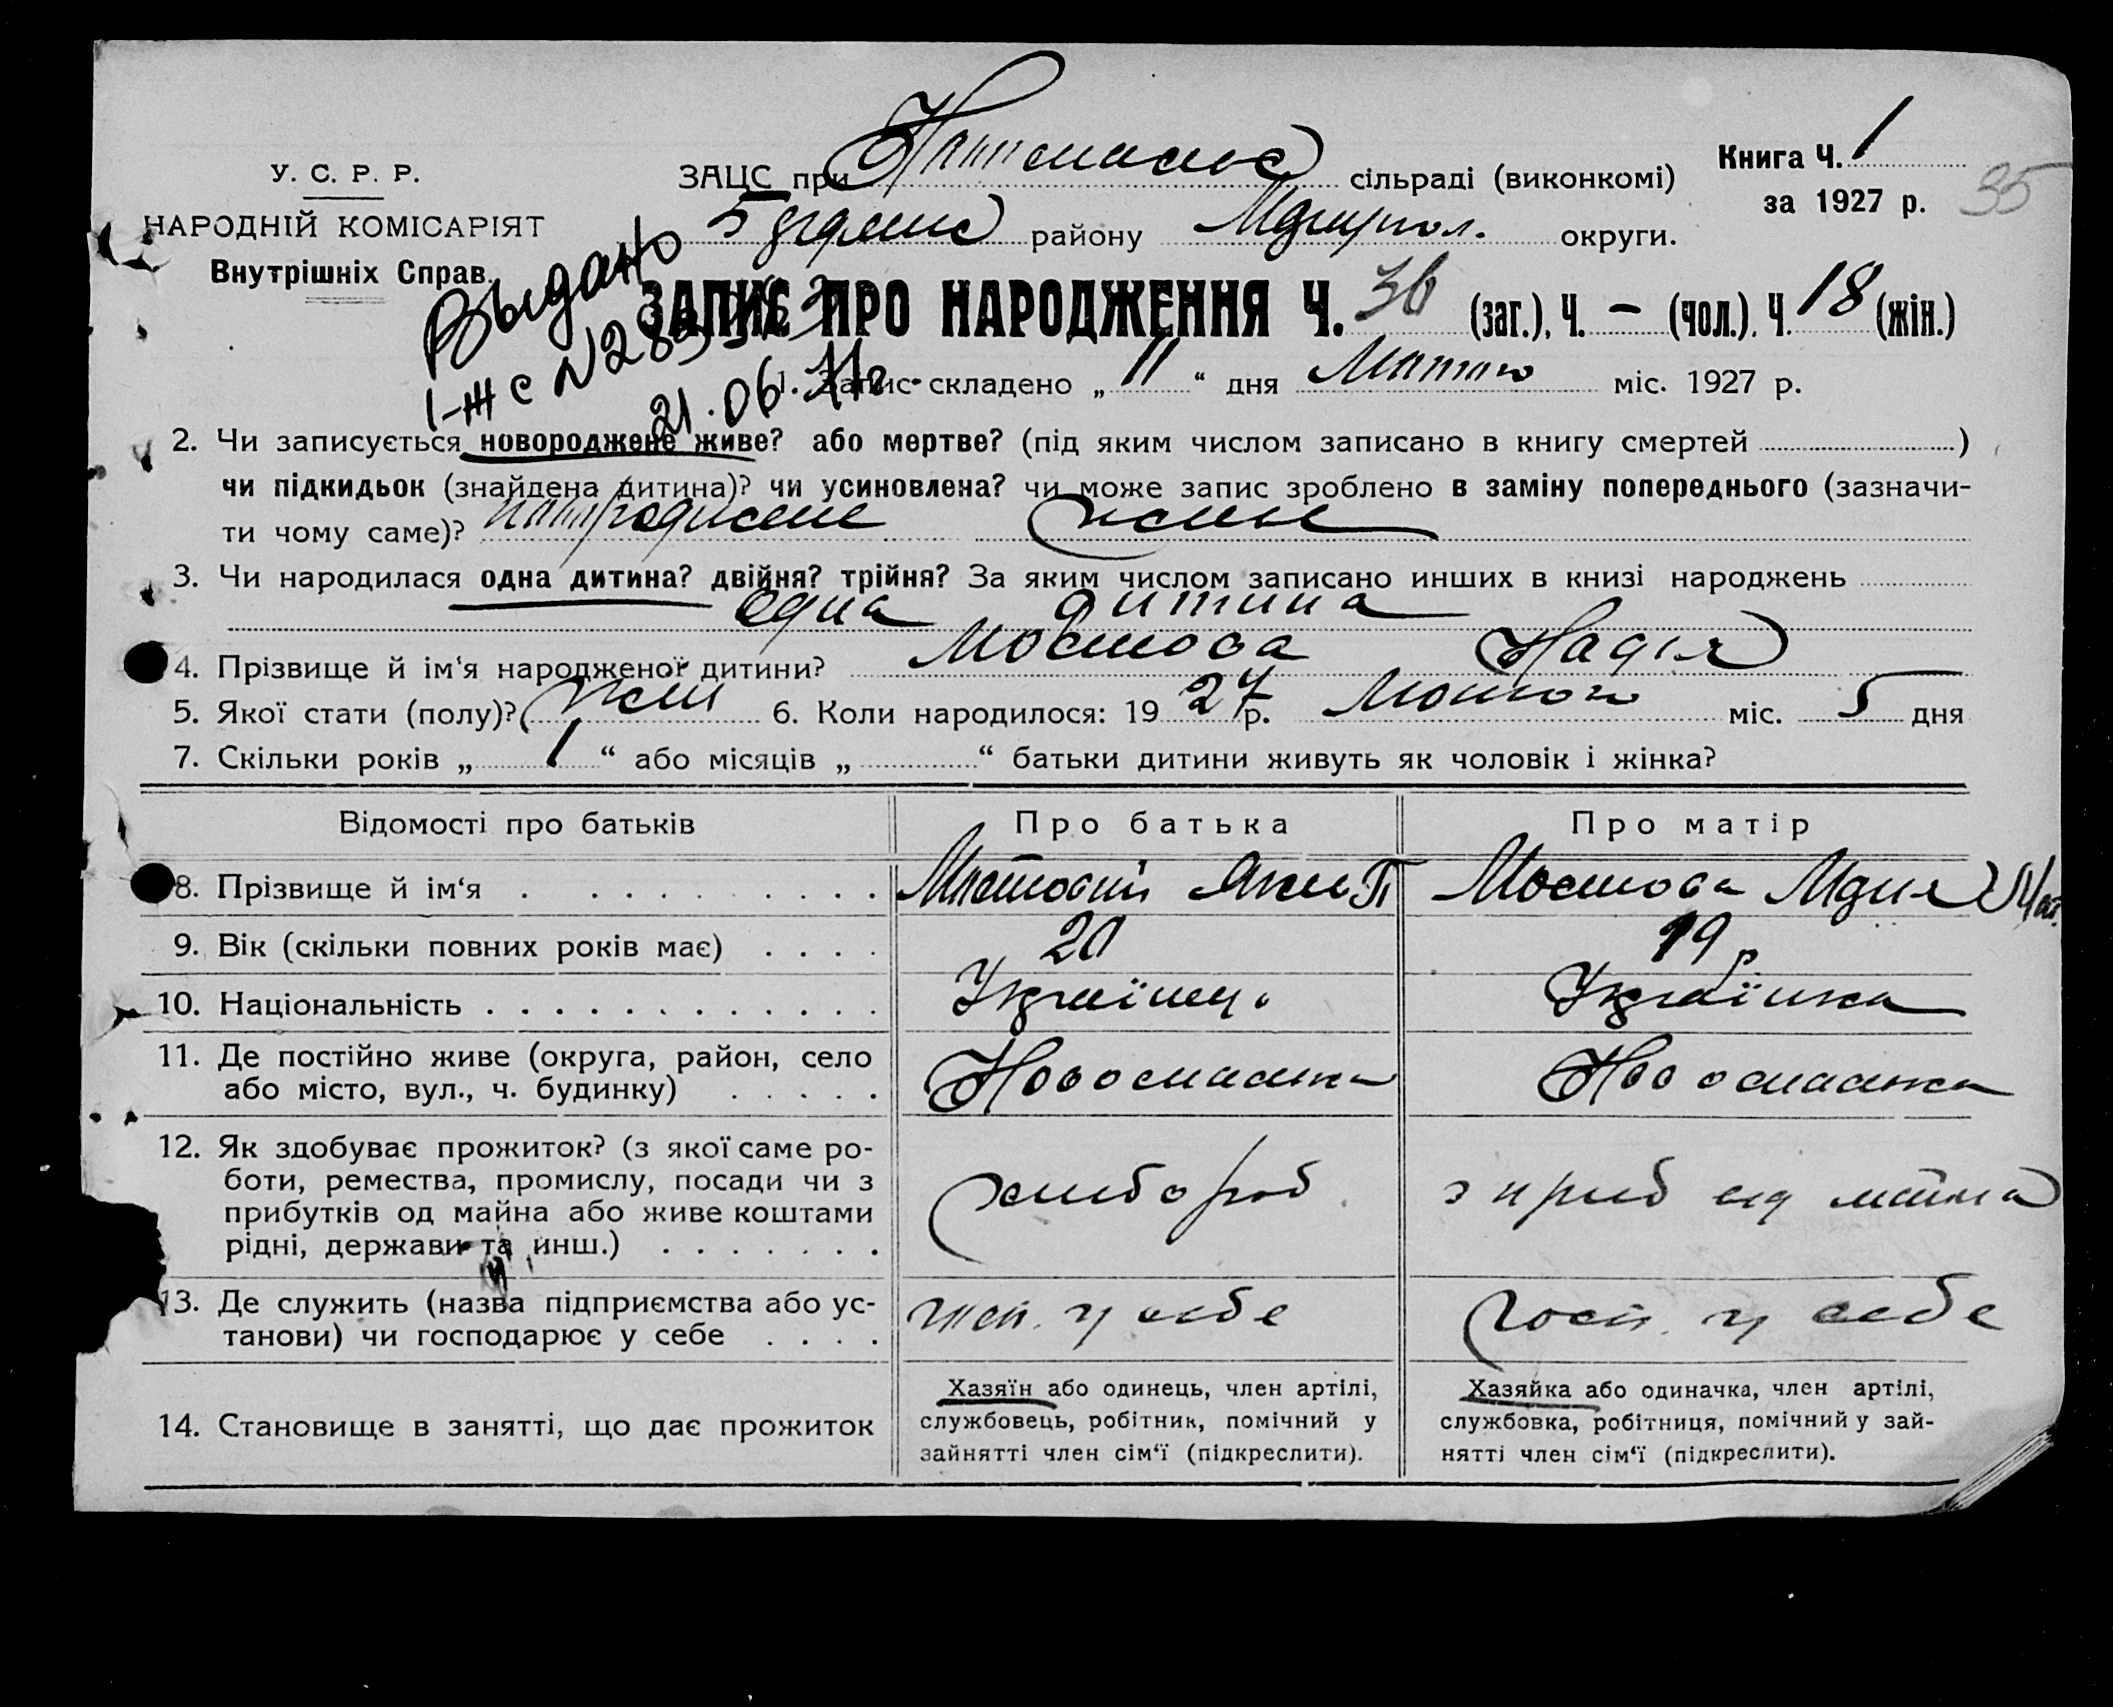 У. С. Р. Р.
НАРОДНІЙ КОМІСАРІЯТ
Внутрішніх Справ.
ЗАЦС при сільраді (виконкомі)
району Маріупол. округи.
Книга Ч. 1
за 1927 р.
35
Выдано
1-ЖС N
21.06.
ЗАПИС ПРО НАРОДЖЕННЯ Ч. 36 (заг.), Ч. — (чол.), Ч. 18 (жін.)
1. Запис складено „ 11 “ дня Лютого міс. 1927 р.
2. Чи записується новороджене живе? або мертве? (під яким числом записано в книгу смертей )
чи підкидьок (знайдена дитина)? чи усиновлена? чи може запис зроблено в заміну попереднього (зазначи-
ти чому саме)? живе
3. Чи народилася одна дитина? двійня? трійня? За яким числом записано инших в книзі народжень
одна дитина
4. Прізвище й ім‘я народженої дитини? Мостова Надія
5. Якої стати (полу)? жін 6. Коли народилося: 19 27 р. Лютого міс. 5 дня
7. Скільки років „ 1 “ або місяців „ “ батьки дитини живуть як чоловік і жінка?
Відомості про батьків Про батька Про матір
8. Прізвище й ім‘я Мостовий Яким П Мостова Марія
9. Вік (скільки повних років має) 20 19 р
10. Національність Українець Українка
11. Де постійно живе (округа, район, село
або місто, вул., ч. будинку) Новоспаська Новоспаська
12. Як здобуває прожиток? (з якої саме ро-
боти, ремества, промислу, посади чи з
прибутків од майна або живе коштами
рідні, держави та инш.) хлібороб з приб од майна
13. Де служить (назва підприємства або ус-
танови) чи господарює у себе госп. у себе госп. у себе
14. Становище в занятті, що дає прожиток
Хазяїн або одинець, член артілі,
службовець, робітник, помічний у
зайнятті член сім‘ї (підкреслити).
Хазяйка або одиначка, член артілі,
службовка, робітниця, помічний у зай-
нятті член сім‘ї (підкреслити).